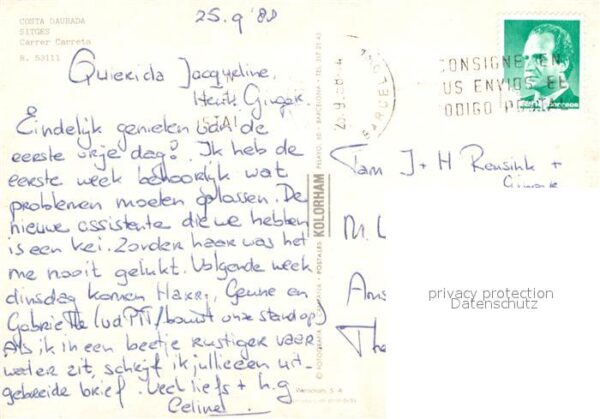 COSTA DAURADA
SITGES
Carrer Carreta
R. 53111
25.9'88
Querida Jacqueline,
Henk Ginger
Eindelijk genieten van de
eerste vrije dag! Ik heb de
eerste week behoorlijk wat
problemen moeten oplossen. De
nieuwe assistente die we hebben
is een kei. Zonder haar was het
me nooit gelukt. Volgende week
dinsdag komen Harry, en
Gabriëtte (vd PTT/bouwt onze stand op)
Als ik in een beetje rustiger vaar
water zit, schrijf ik jullie een uit-
gebreide brief. Veel liefs + h.g
Celine
KOLORHAM
PELAYO, BARCELONA
POSTALES
25.9.88
BARCELONA
CONSIGNE EN
SUS ENVIOS EL
CODIGO POSTAL
correos
Fam J + H Rensink +
M. L
Ams
The
privacy protection
Datenschutz